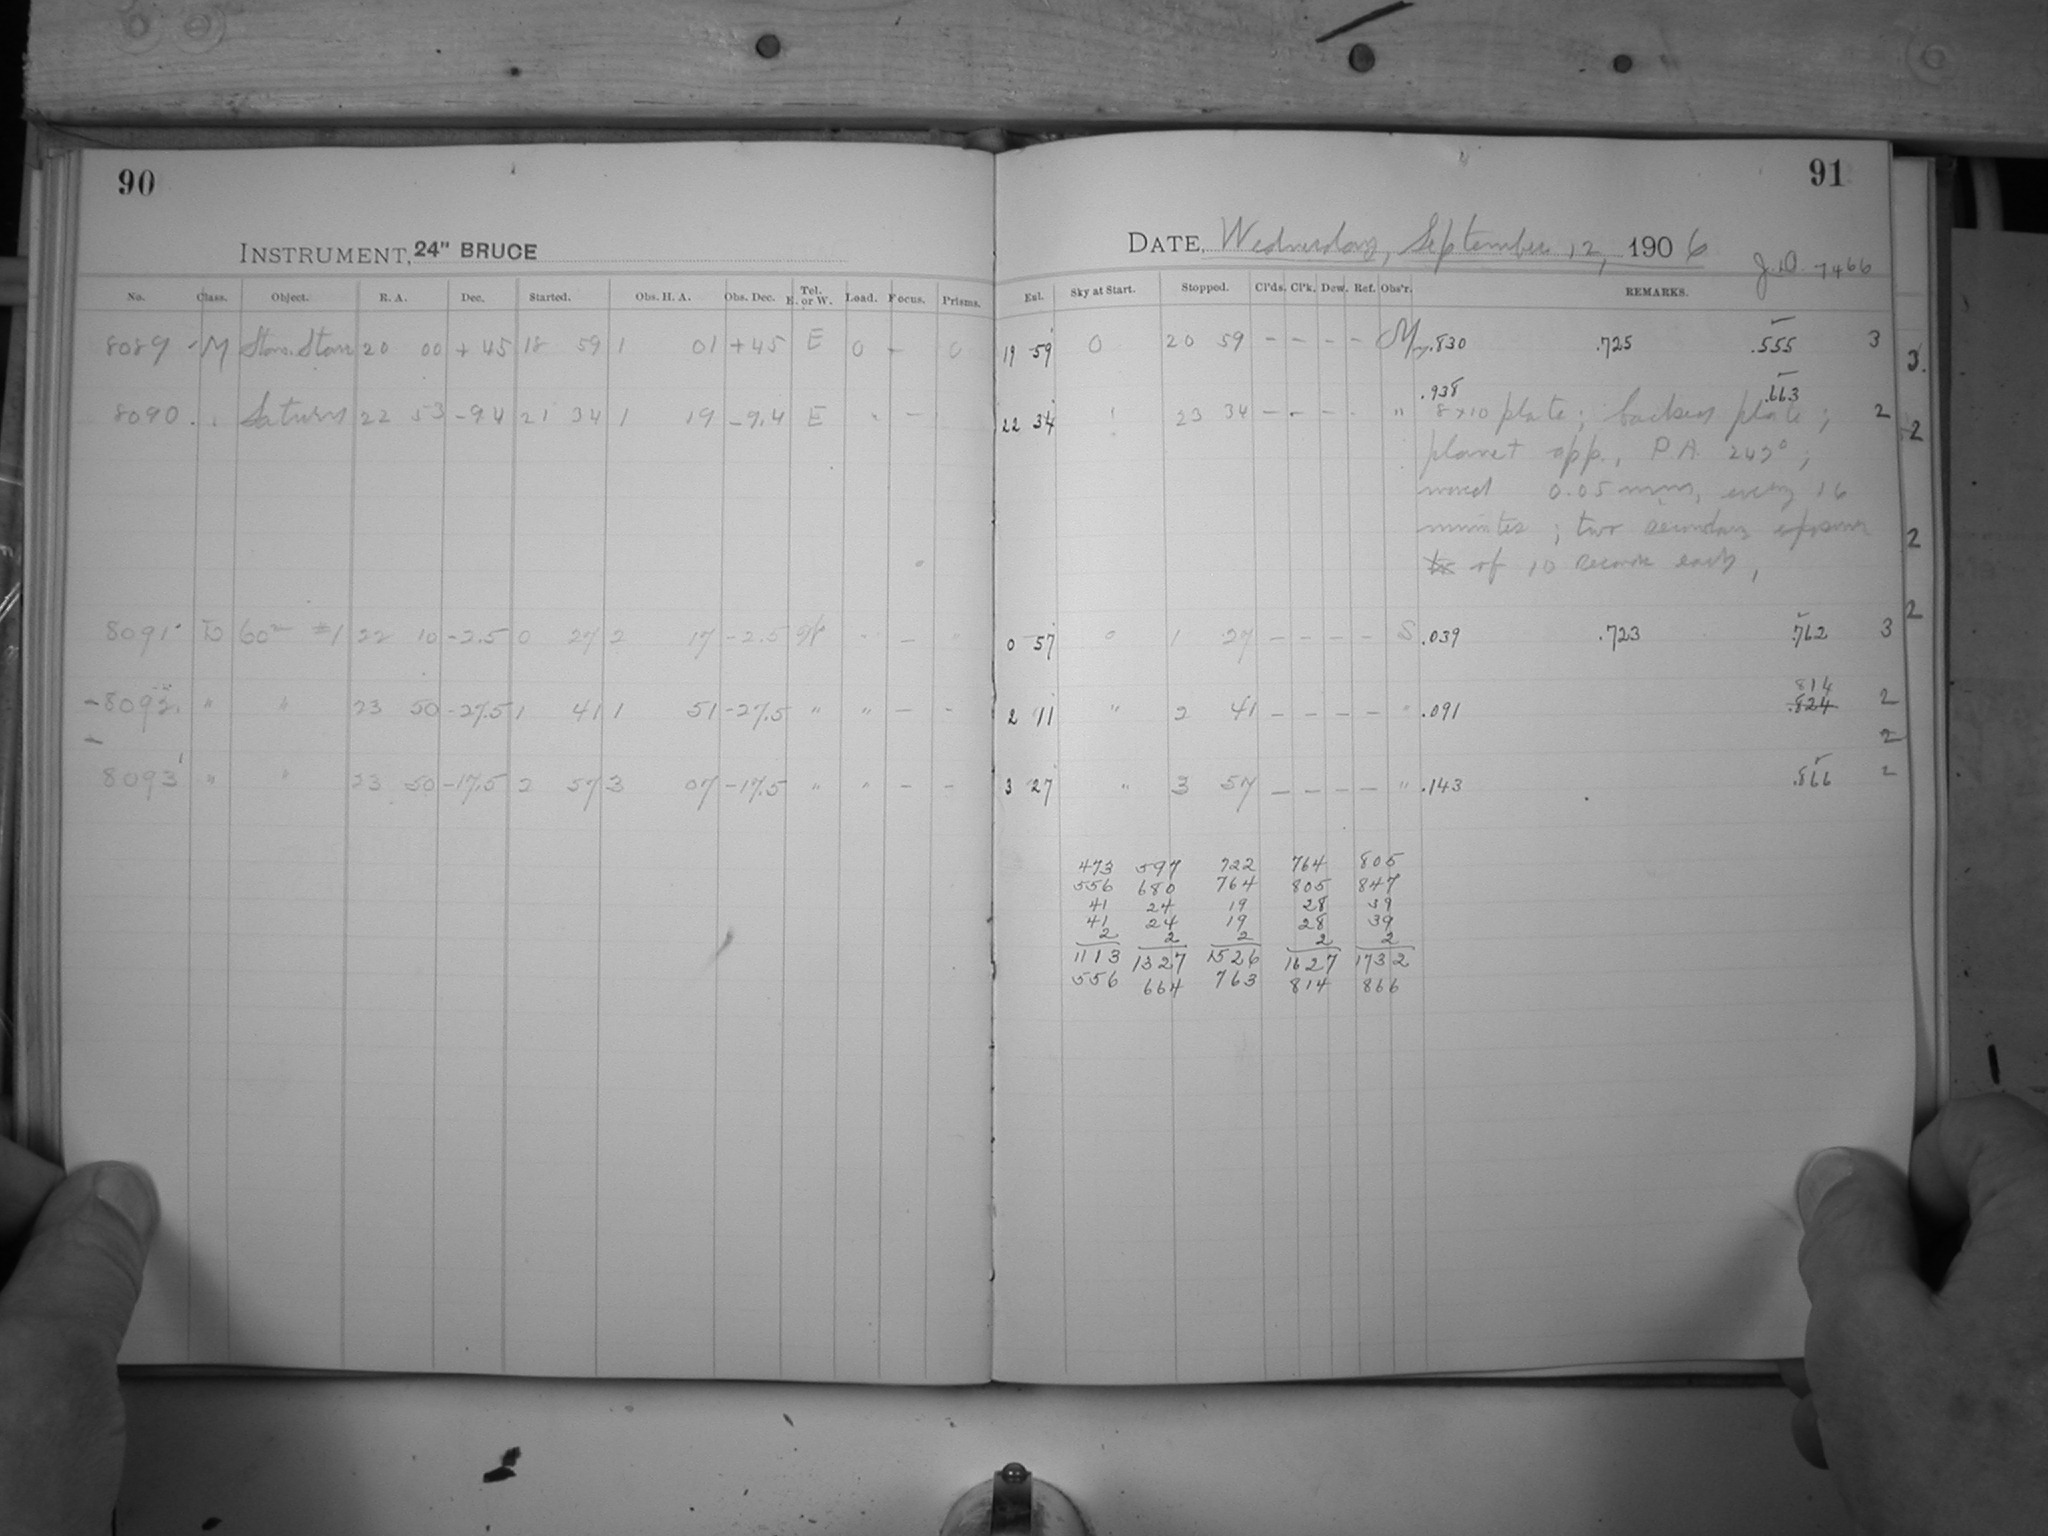 90
91
INSTRUMENT, 24" BRUCE
DATE, Wednesday, September 12, 1906
J.D. 7466
No. Class. Object. R. A. Dec. Started. Obs. H. A. Obs. Dec. Tel. E. or W. Load. Focus. Prisms.
Exl. Sky at Start. Stopped. Cl'ds. Cl'k. Dew. Ref. Obs'r. REMARKS.
8089 M Stan. Stars 20 00 +45 18 59 1 01 +45 E 0 - 0 19 59 0 20 59 - - - - .830 .725 .555 3
.938 .663
8090 Saturn 22 53 -9.4 21 34 1 19 -9.4 E " - 22 34 23 34 - - - - " 8x10 plate; plate; 2
planet app., P.A. 249°;
moved 0.05 mm, every 16
minutes; two secondary exposures
of 10 seconds each,
8091 60m #1 22 10 -2.5 0 27 2 17 -2.5 " - " 0 57 0 1 27 - - - - S .039 .723 .762 3
814
8092 " " 23 50 -27.5 1 41 1 51 -27.5 " " - - 2 11 " 2 41 - - - - " .091 .824 2
2
8093 " " 23 50 -17.5 2 57 3 07 -17.5 " " - - 3 27 " 3 57 - - - - " .143 .866 2
473 597 722 764 805
556 680 764 805 847
41 24 19 28 39
41 24 19 28 39
2 2 2 2 2
1113 1327 1526 1627 1732
556 664 763 814 866
3.
2
2
2